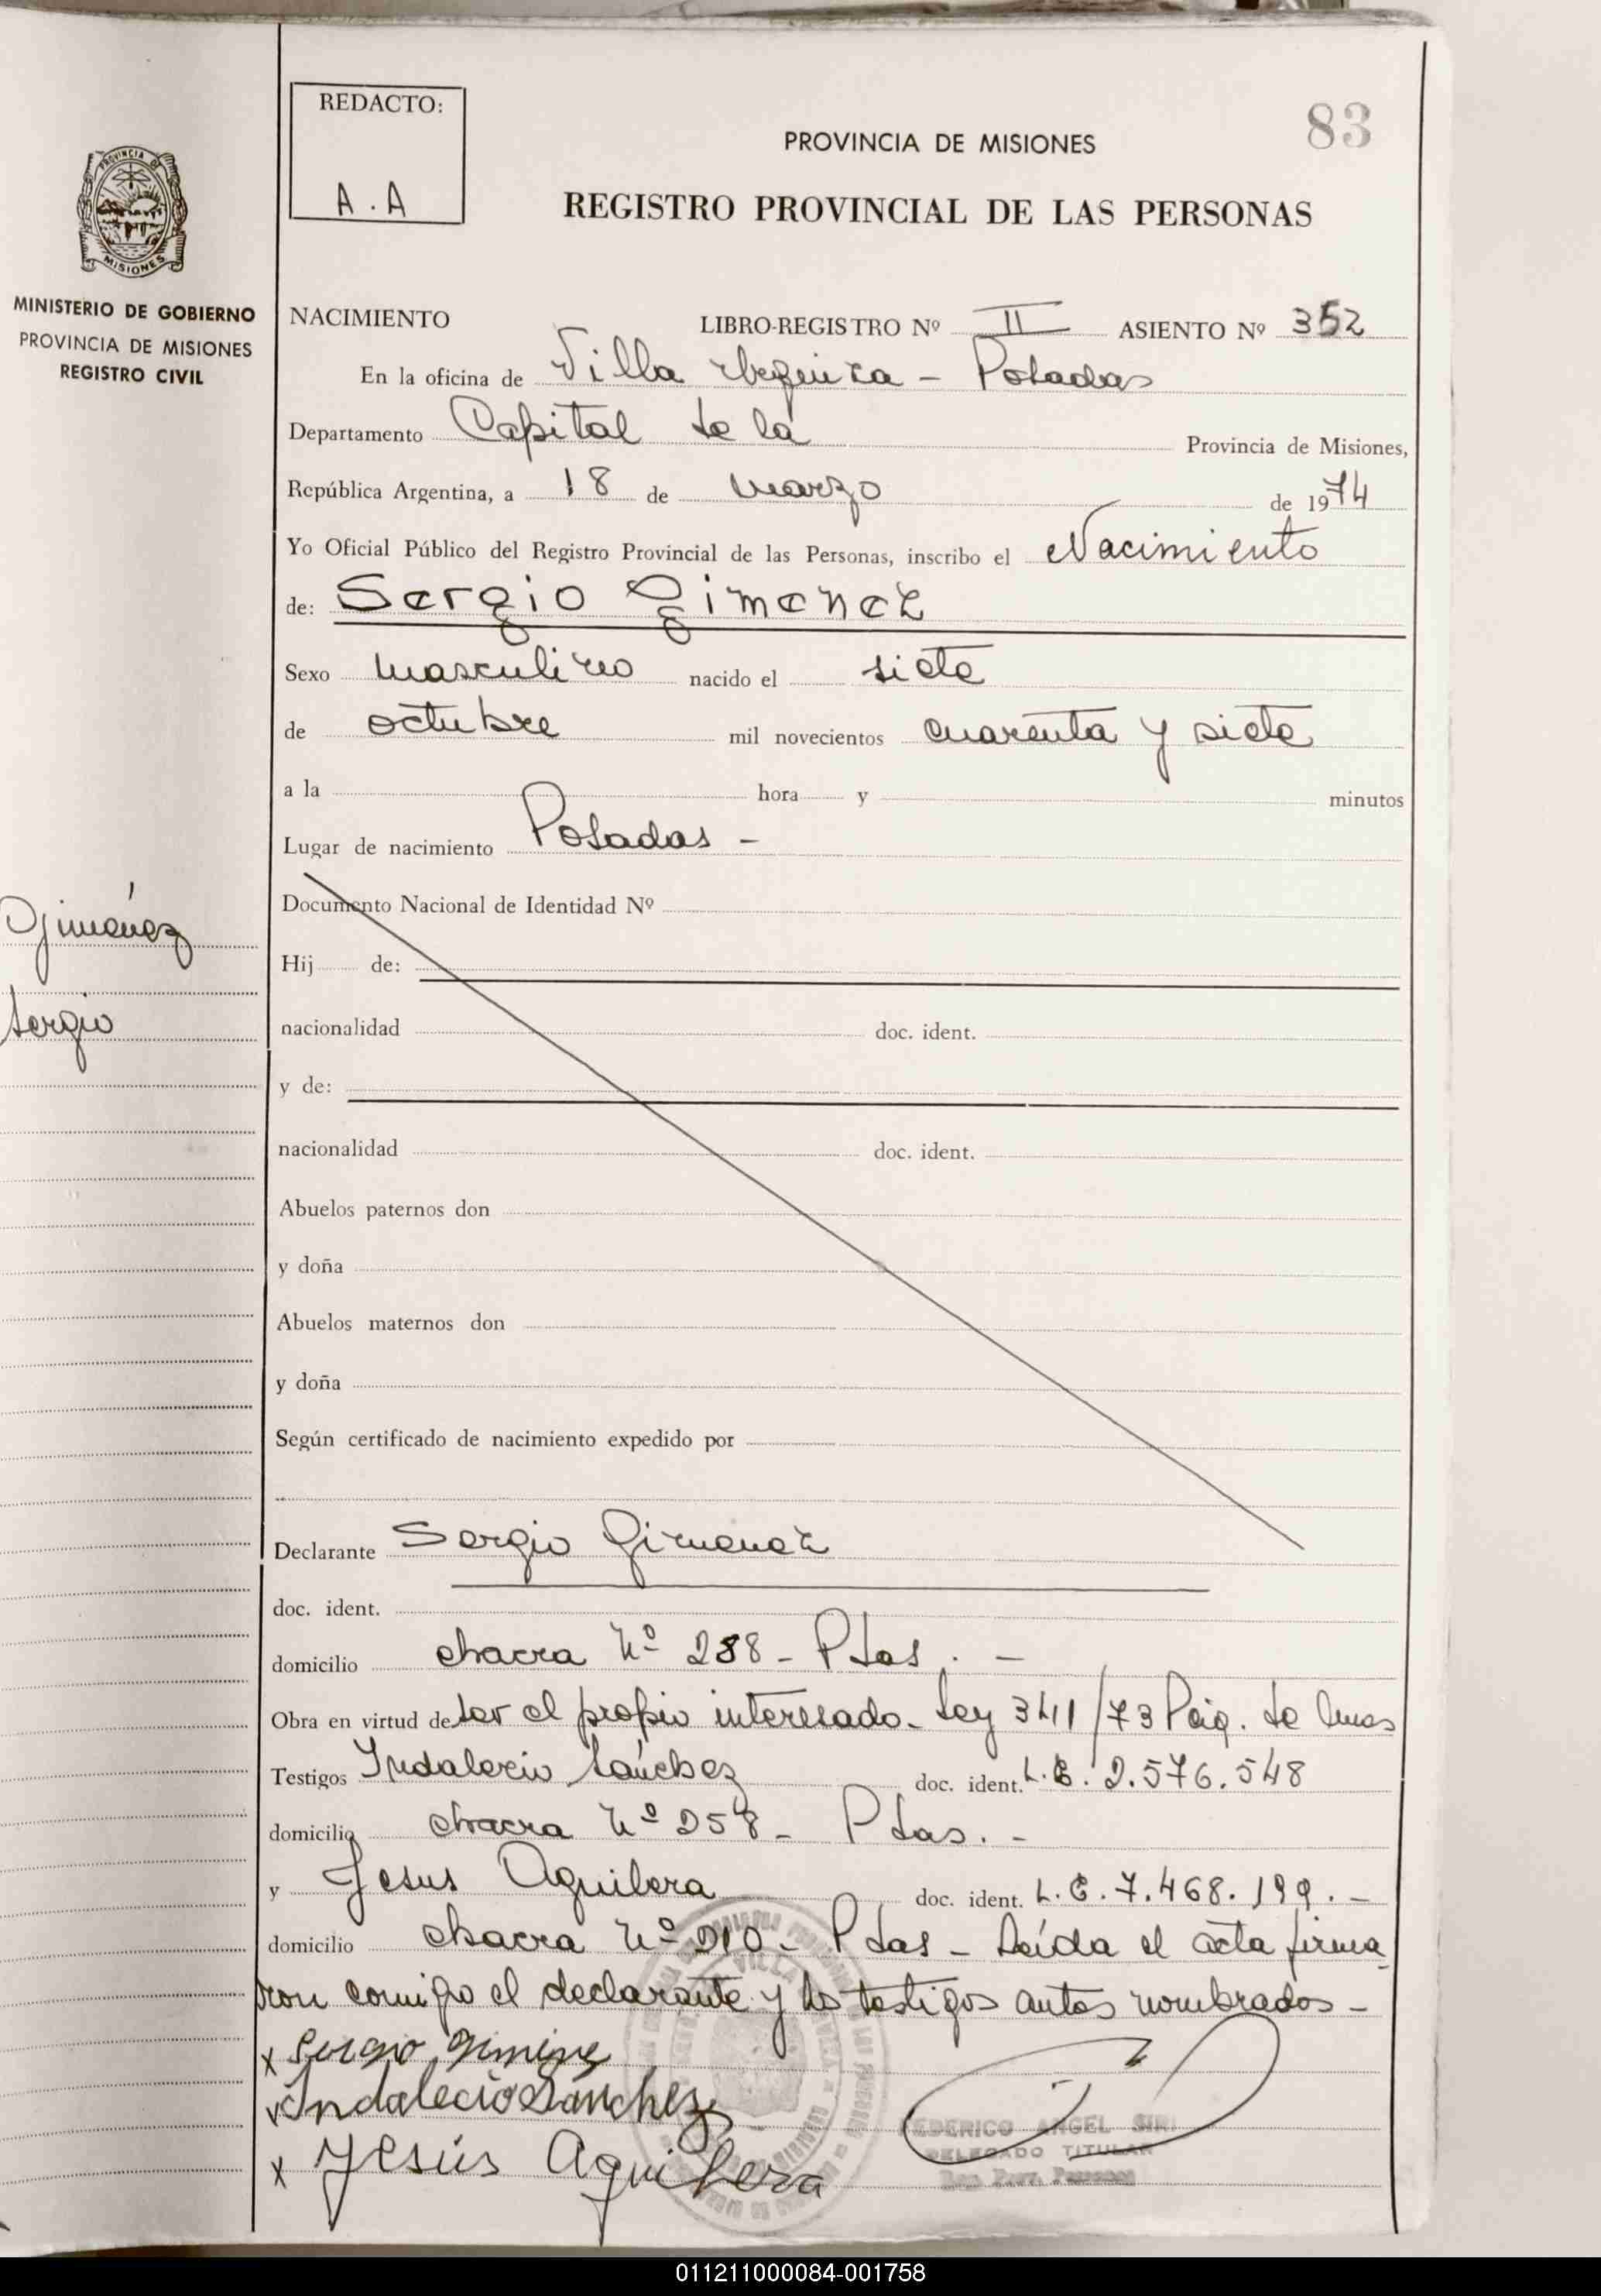 REDACTO:
A.A
83
PROVINCIA DE MISIONES
REGISTRO PROVINCIAL DE LAS PERSONAS
PROVINCIA DE
MISIONES
MINISTERIO DE GOBIERNO
PROVINCIA DE MISIONES
REGISTRO CIVIL
NACIMIENTO LIBRO-REGISTRO Nº II ASIENTO Nº 352
En la oficina de Villa Urquiza - Posadas
Departamento Capital de la Provincia de Misiones,
República Argentina, a 18 de marzo de 1974
Yo Oficial Público del Registro Provincial de las Personas, inscribo el Nacimiento
de: Sergio Gimenez
Sexo masculino nacido el siete
de octubre mil novecientos cuarenta y siete
a la hora y minutos
Lugar de nacimiento Posadas -
Documento Nacional de Identidad Nº
Gimenez
Hij de:
Sergio
nacionalidad doc. ident.
y de:
nacionalidad doc. ident.
Abuelos paternos don
y doña
Abuelos maternos don
y doña
Según certificado de nacimiento expedido por
Declarante Sergio Gimenez
doc. ident.
domicilio chacra Nº 288 - Pdas. -
Obra en virtud de ser el propio interesado. Ley 341/73
Testigos Indalecio Sánchez doc. ident. L.E. 2.576.548
domicilio chacra Nº 258 - Pdas. -
y Jesus Aguilera doc. ident. L.E. 7.468.199. -
domicilio chacra Nº 210 - Pdas - Leída el acta firma
ron conmigo el declarante y los testigos antes nombrados -
x Sergio Gimenez
x Indalecio Sánchez
x Jesús Aguilera
FEDERICO ANGEL
DELEGADO TITULAR
011211000084-001758